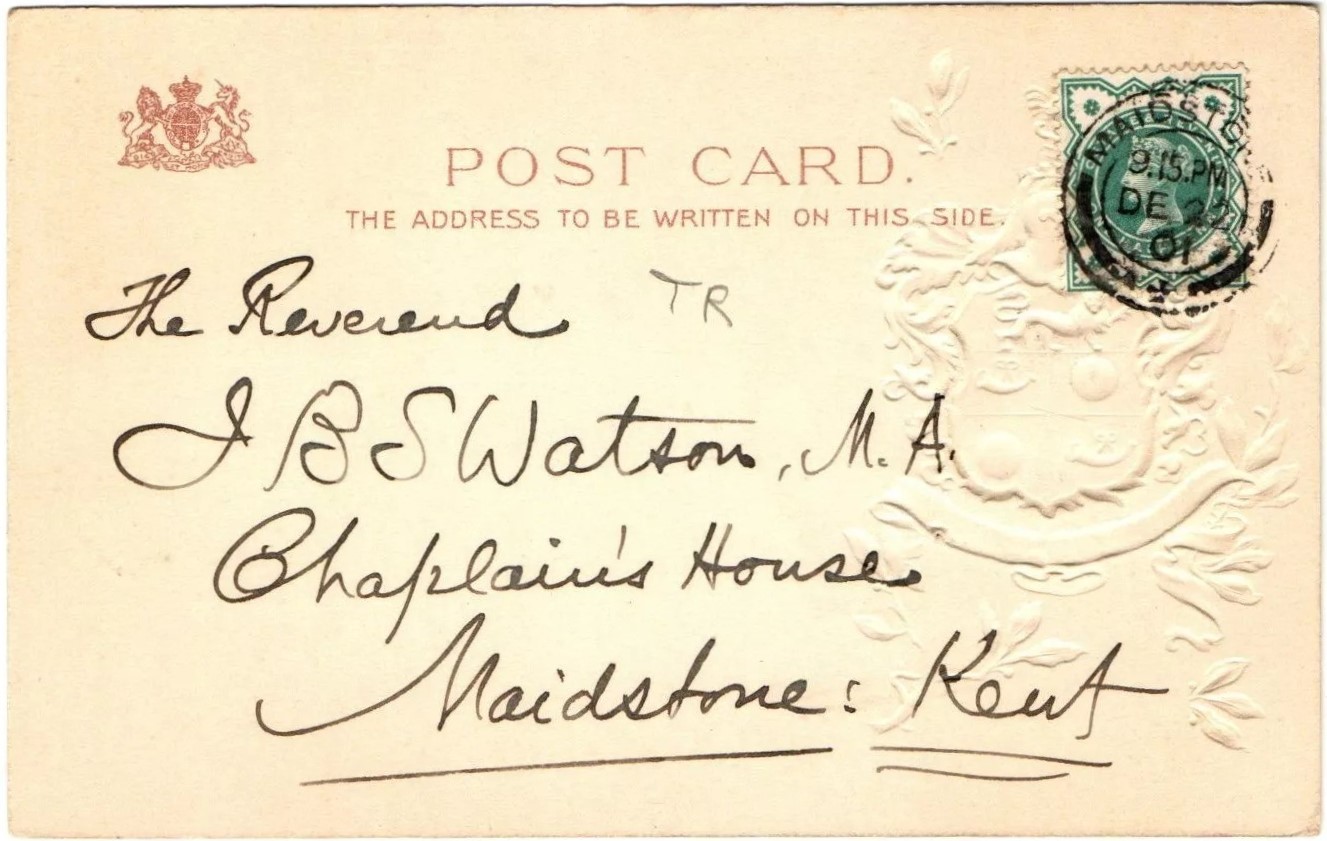 POST CARD.
THE ADDRESS TO BE WRITTEN ON THIS SIDE.
MAIDSTONE
9.15.PM
DE 22
01
The Reverend
TR
J B S Watson, M.A.
Chaplain's House
Maidstone: Kent